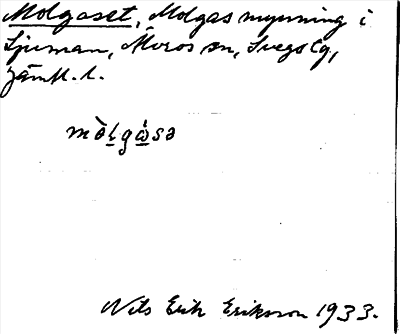 Molgaset, Molgas mynning i
Ljusnan, Överos sn, Svegs tg,
Jämtl. l.
mò̀l̲gὼ̲sə
Nils Erik Eriksson 1933.